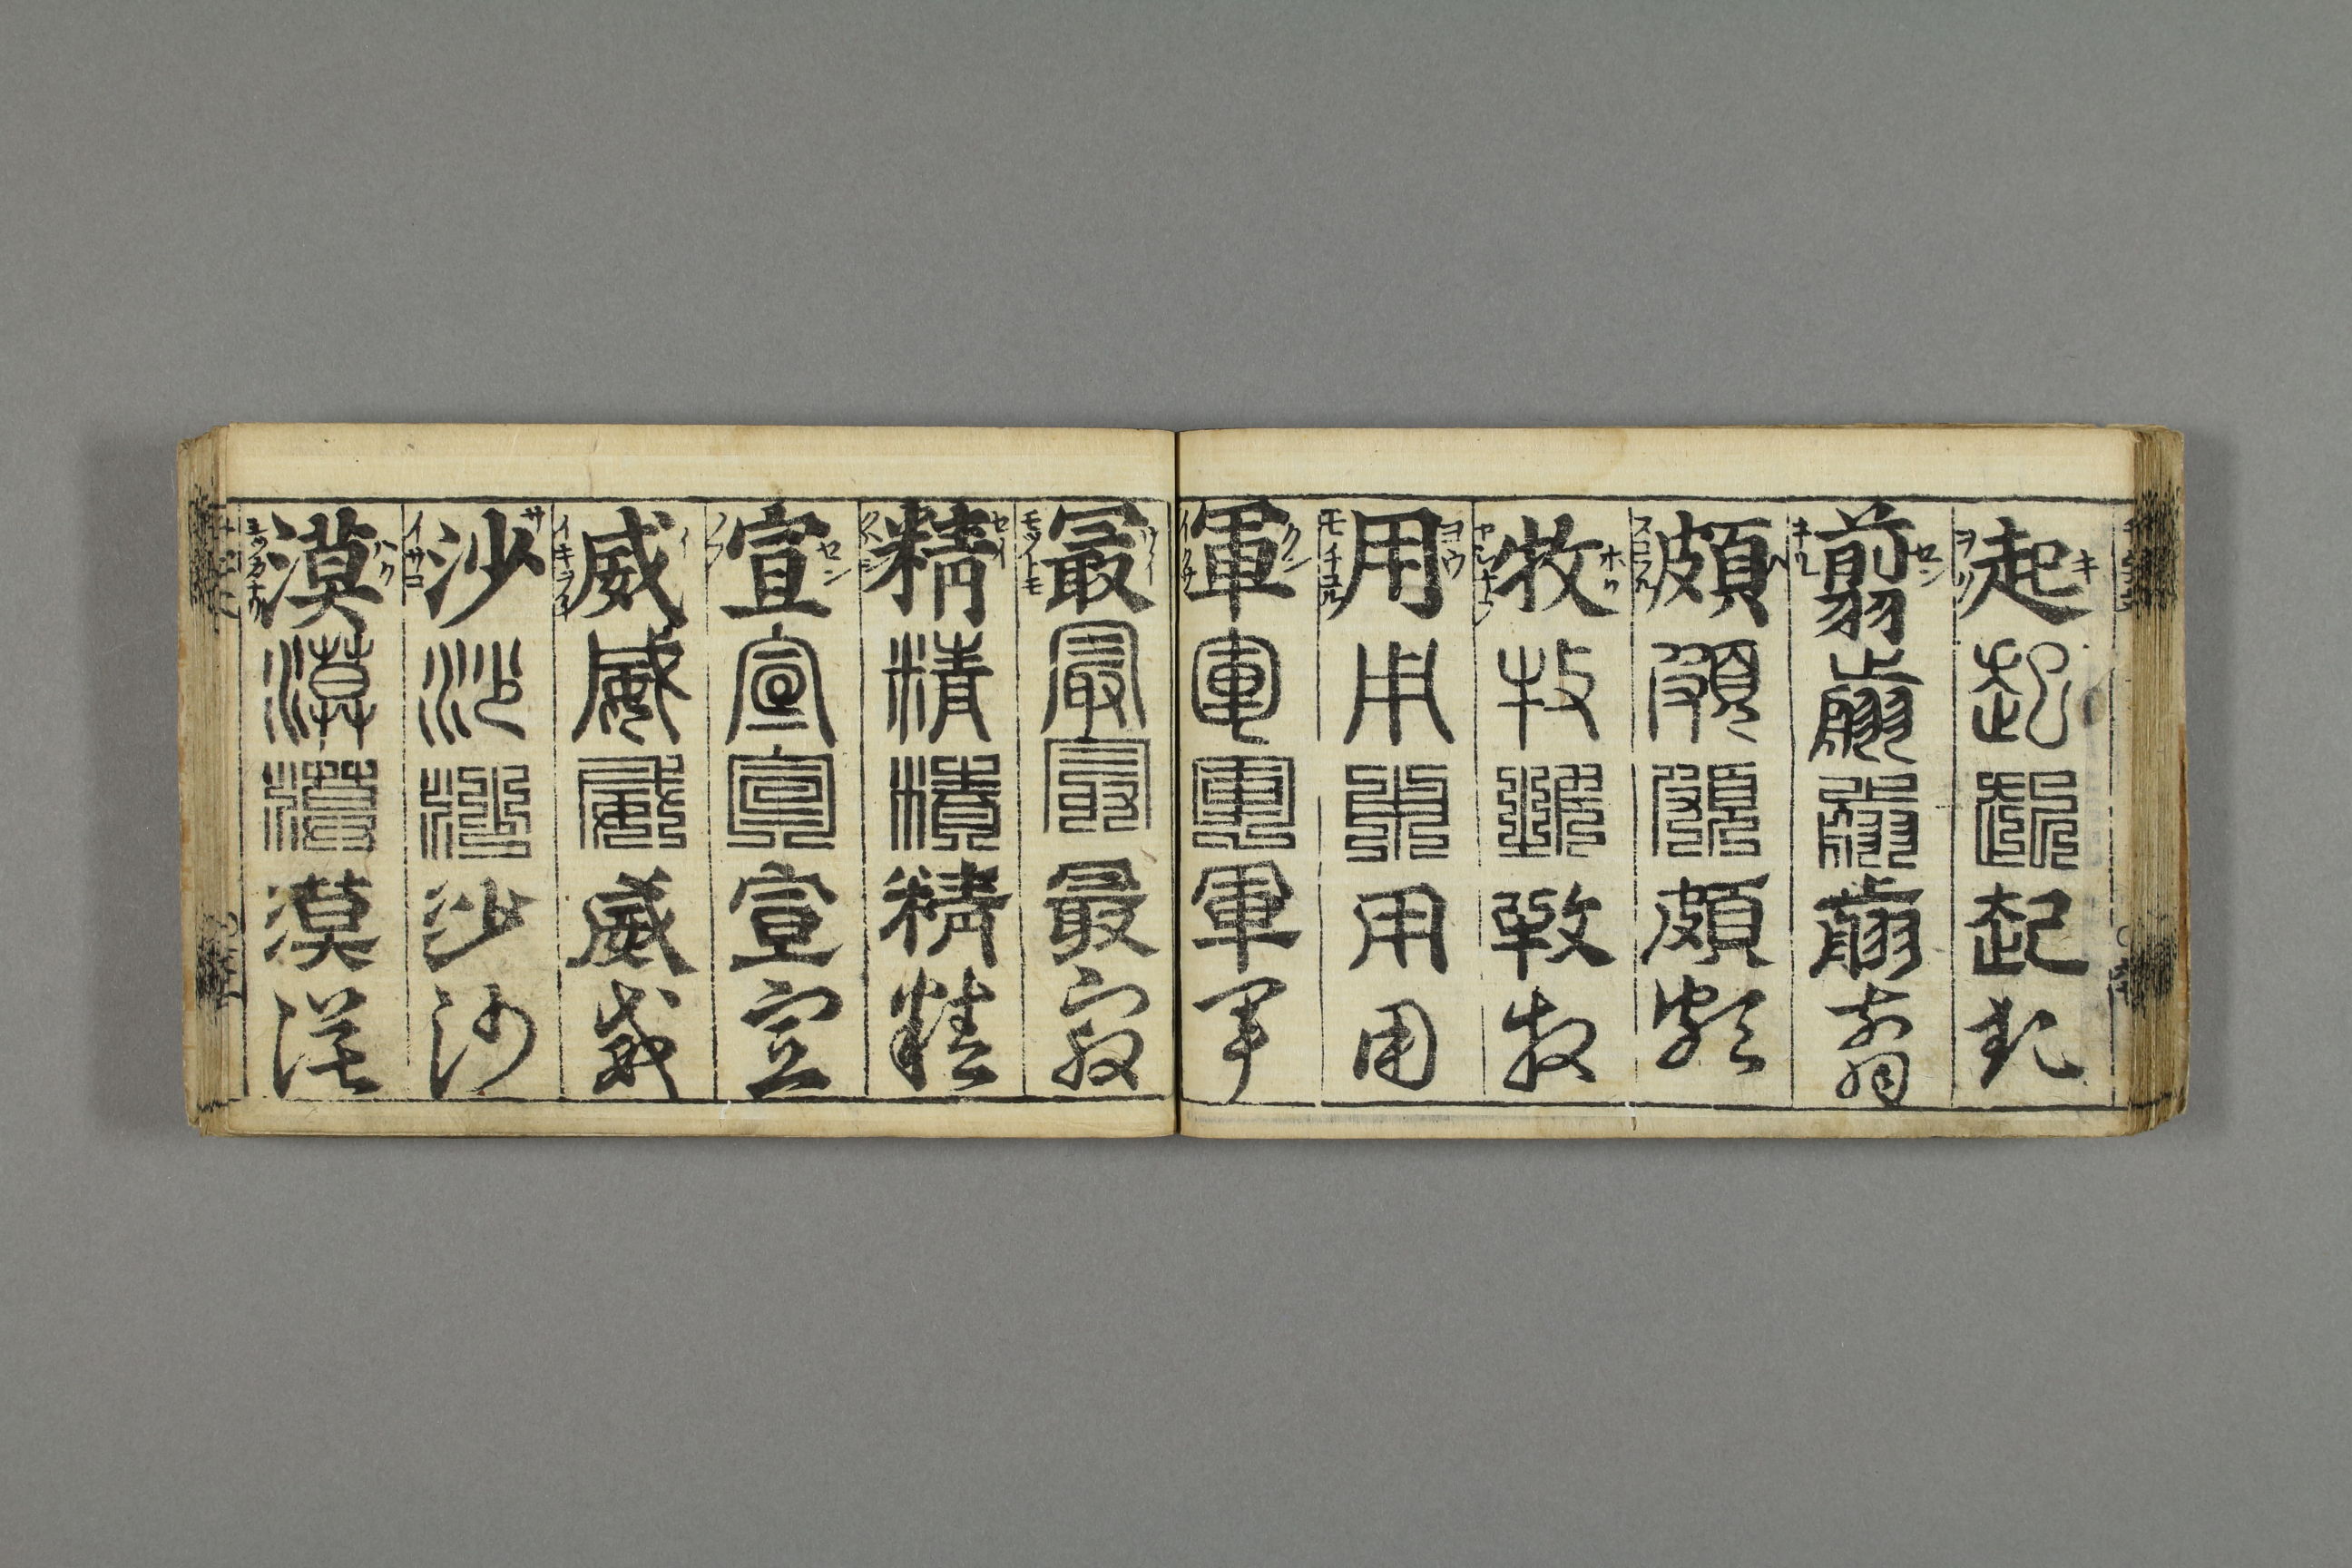 起起起起起
キ
翦翦翦翦翦
セン
頗頗頗頗頗
牧牧牧牧牧
ホク
用用用用用
ヨウ
モチユル
軍軍軍軍軍
クン
イクサ
最最最最最
サイ
モツトモ
精精精精精
セイ
クハシ
宣宣宣宣宣
セン
ノフ
威威威威威
イ
イキヲヒ
沙沙沙沙沙
サ
イサコ
漠漠漠漠漠
ハク